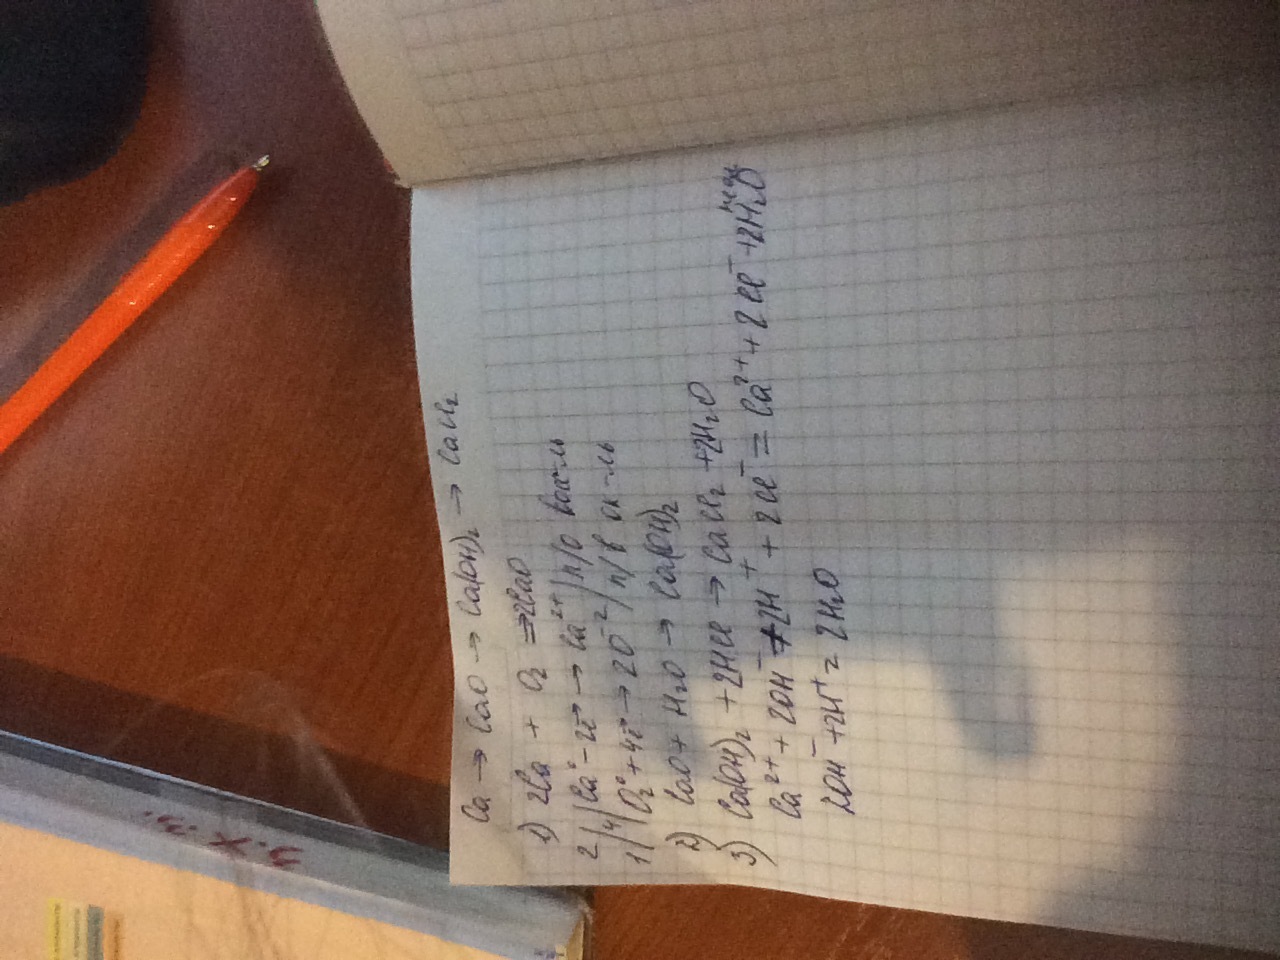 Ca → CaO → Ca(OH)₂ → CaCl₂
1) 2Ca + O₂ = 2CaO
2 | 4 | Ca⁰ - 2ē → Ca²⁺ | п/о вост-ль
1 | O₂⁰ + 4ē → 2O⁻² | п/в ок-ль
2) CaO + H₂O → Ca(OH)₂
3) Ca(OH)₂ + 2HCl → CaCl₂ + 2H₂O
Ca²⁺ + 2OH⁻ + 2H⁺ + 2Cl⁻ = Ca²⁺ + 2Cl⁻ + 2H₂O
2OH⁻ + 2H⁺ = 2H₂O